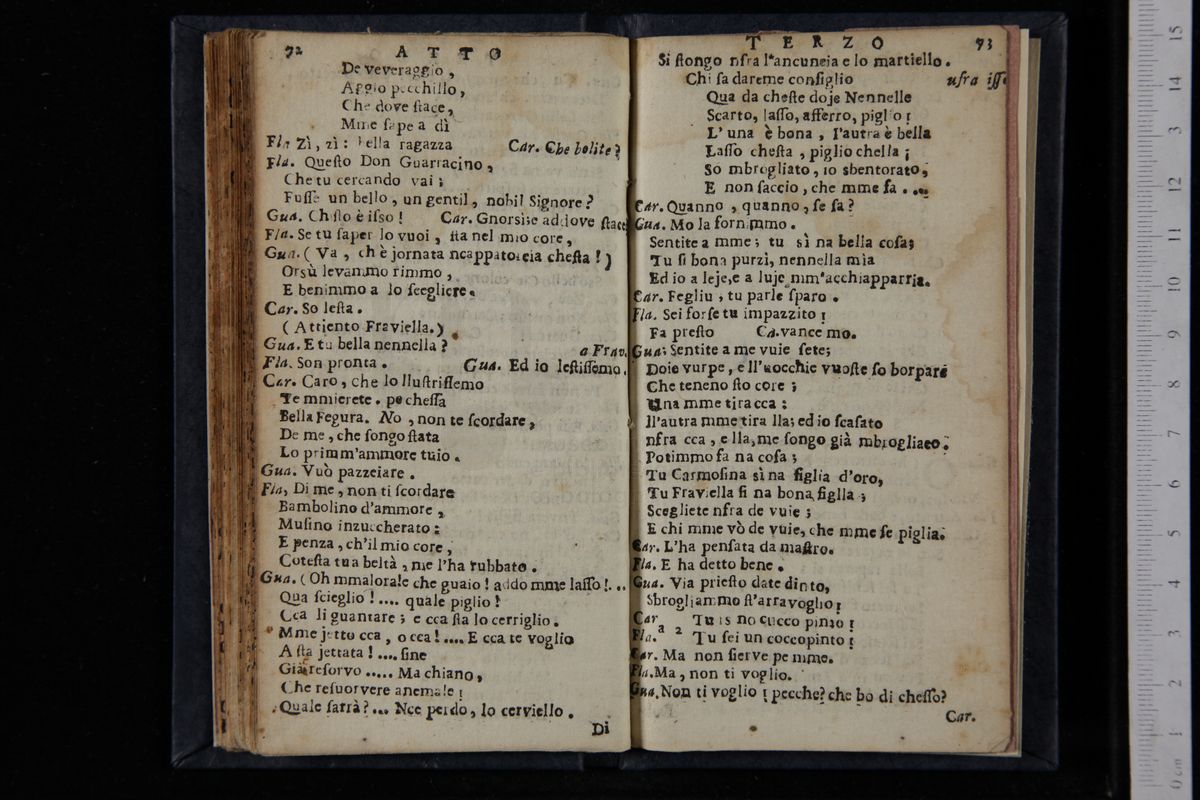 72 ATTO
De veveraggio,
Aggio pecchillo,
Che dove ſtace,
Mme ſape a dì
Fla. Zì, zì: bella ragazza Car. Che bolite?
Fla. Queſto Don Guarracino,
Che tu cercando vai;
Fuſſe un bello, un gentil, nobil Signore?
Gua. Chſto è iſso! Car. Gnorsìːe addove ſtace
Fla. Se tu ſaper lo vuoi, ſta nel mio core,
Gua. (Va, ch'è jornata ncappatoꝛeia cheſta!)
Orsù levammo rimmo,
E benimmo a lo ſcegliere.
Car. So leſta.
(Attiento Fraviella.)
Gua. E tu bella nennella? a Frav.
Fla. Son pronta. Gua. Ed io leſtiſſemo.
Car. Caro, che lo lluſtriſſemo
Te mmierete. pe cheſſa
Bella Fegura. No, non te ſcordare,
De me, che ſongo ſtata
Lo primm'ammore tuio.
Gua. Vuò pazzeiare.
Fla, Di me, non ti ſcordare
Bambolino d'ammore,
Muſino inzuccherato:
E penza, ch'il mio core,
Coteſta tua beltà, me l'ha rubbato.
Gua. (Oh mmalora!e che guaio! addo mme laſſo!...
Qua ſcieglio!.... quale piglio!
Cca li guantare; e cca ſta lo cerriglio.
Mme jetto cca, o cca!.... E cca te voglio
A ſta jettata!.... ſine
Già reſorvo..... Ma chiano,
Che reſuorvere anema!e!
Quale ſarrà?... Nce perdo, lo cerviello.
Di
TERZO 73
Si ſtongo nfra l'ancuneia e lo martiello.
Chi ſa dareme conſiglio uſra iſſe
Qua da cheſte doje Nennelle
Scarto, laſſo, afferro, piglio!
L'una è bona, l'autra è bella
Laſſo cheſta, piglio chella;
So mbrogliato, io sbentorato;
E non ſaccio, che mme ſa...
Car. Quanno, quanno, ſe ſa?
Gua. Mo la fornimmo.
Sentite a mme; tu sì na bella coſa;
Tu ſi bona purzì, nennella mia
Ed io a leje,e a luje mm'acchiapparria.
Car. Fegliu, tu parle ſparo.
Fla. Sei forſe tu impazzito!
Fa preſto Ca. vance mo.
Gua; Sentite a me vuie ſete;
Doie vurpe, e ll'uocchie vuoſte ſo borpare
Che teneno ſto core;
Una mme tira cca:
ll'autra mme tira lla; ed io ſcaſato
nfra cca, e lla, me ſongo già mbrogliato.
Potimmo fa na coſa;
Tu Carmoſina sì na figlia d'oro,
Tu Fraviella ſi na bona figlla;
Scegliete nfra de vuie;
E chi mme vò de vuie, che mme ſe piglia.
Car. L'ha penſata da maſtro.
Fla. E ha detto bene.
Gua. Via prieſto date dinto,
Sbrogliammo ſt'arravoglio!
Car Tu is no cucco pinto!
Fla. a 2 Tu ſei un coccopinto!
Car. Ma non ſierve pe mme.
Fla. Ma, non ti voglio.
Gua. Non ti voglio! pecche? che bo di cheſſo?
Car.